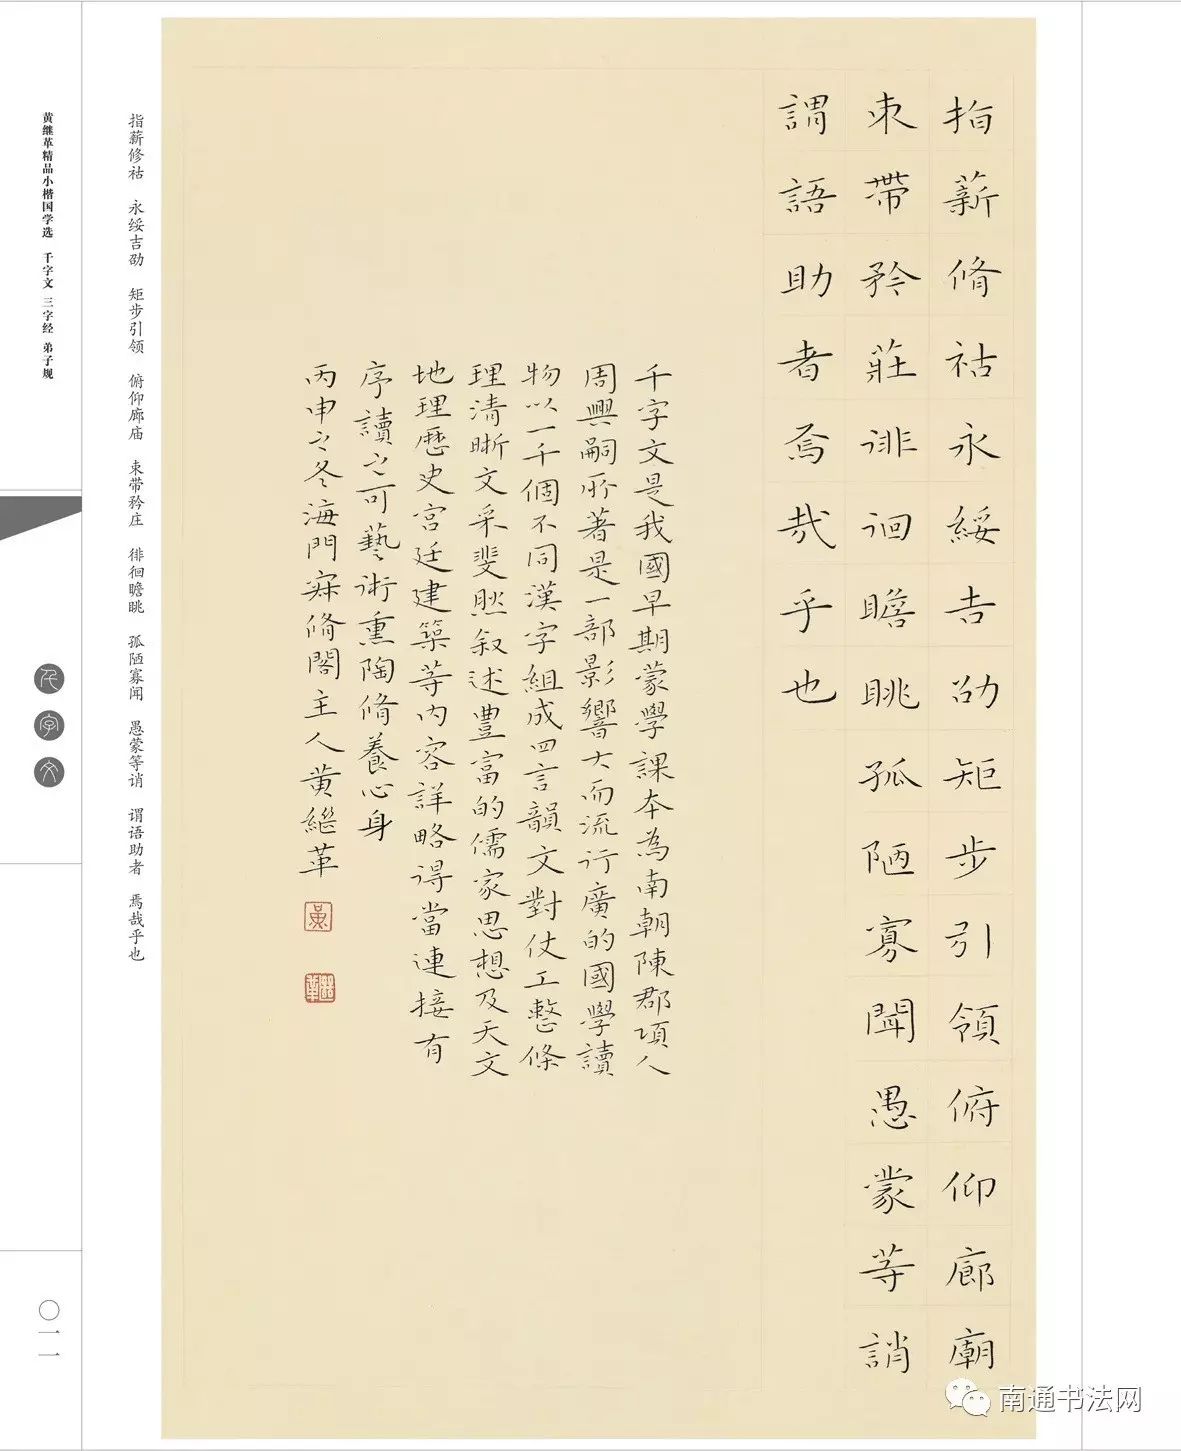 指薪脩祜永綏吉劭矩步引領俯仰廊廟
束帶矜莊徘徊瞻眺孤陋寡聞愚蒙等誚
謂語助者焉哉乎也
千字文是我國早期蒙學課本為南朝陳郡項人
周興嗣所著是一部影響大而流行廣的國學讀
物以一千個不同漢字組成四言韻文對仗工整條
理清晰文采斐然叙述豐富的儒家思想及天文
地理歷史宮廷建築等內容詳略得當連接有
序讀之可藝術熏陶脩養心身
丙申之冬海門寐脩閣主人黄繼革
指薪修祜 永绥吉劭 矩步引领 俯仰廊庙 束带矜庄 徘徊瞻眺 孤陋寡闻 愚蒙等诮 谓语助者 焉哉乎也
黄继革精品小楷国学选 千字文 三字经 弟子规
千字文
〇一一
南通书法网